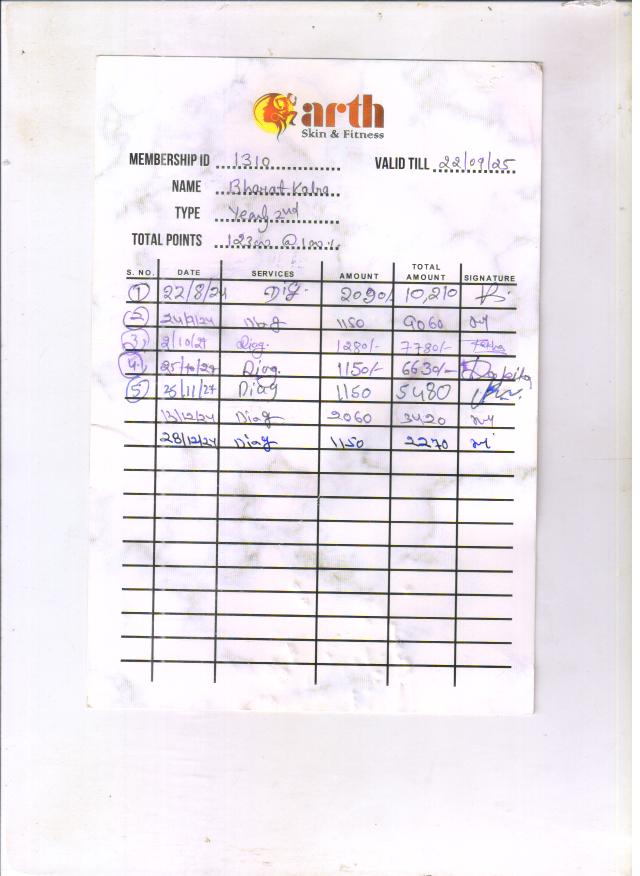 arth
Skin & Fitness
MEMBERSHIP ID 1310 VALID TILL 22/09/25
NAME Bharat Kalra
TYPE Yearly 2nd
TOTAL POINTS 12300 @
S. NO. DATE SERVICES AMOUNT TOTAL AMOUNT SIGNATURE
1 22/8/24 Dig. 2090/- 10,210
2 24/9/24 Diag 1150 9060
3 2/10/24 Diag. 1280/- 7780/-
4 25/10/24 Diag. 1150/- 6630/-
5 25/11/24 Diag 1150 5480
13/12/24 Diag 2060 3420
28/12/24 Diag 1150 2270